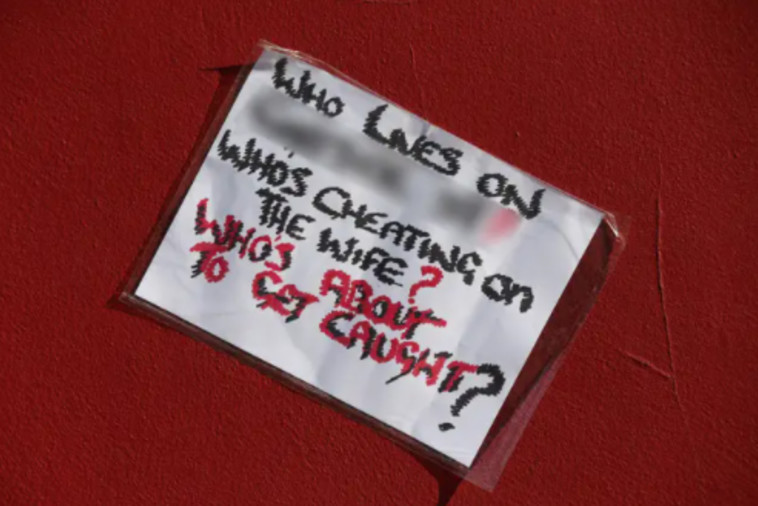 WHO LIVES ON
WHO'S CHEATING on
THE WIFE?
WHO'S ABOUT
TO GET CAUGHT?